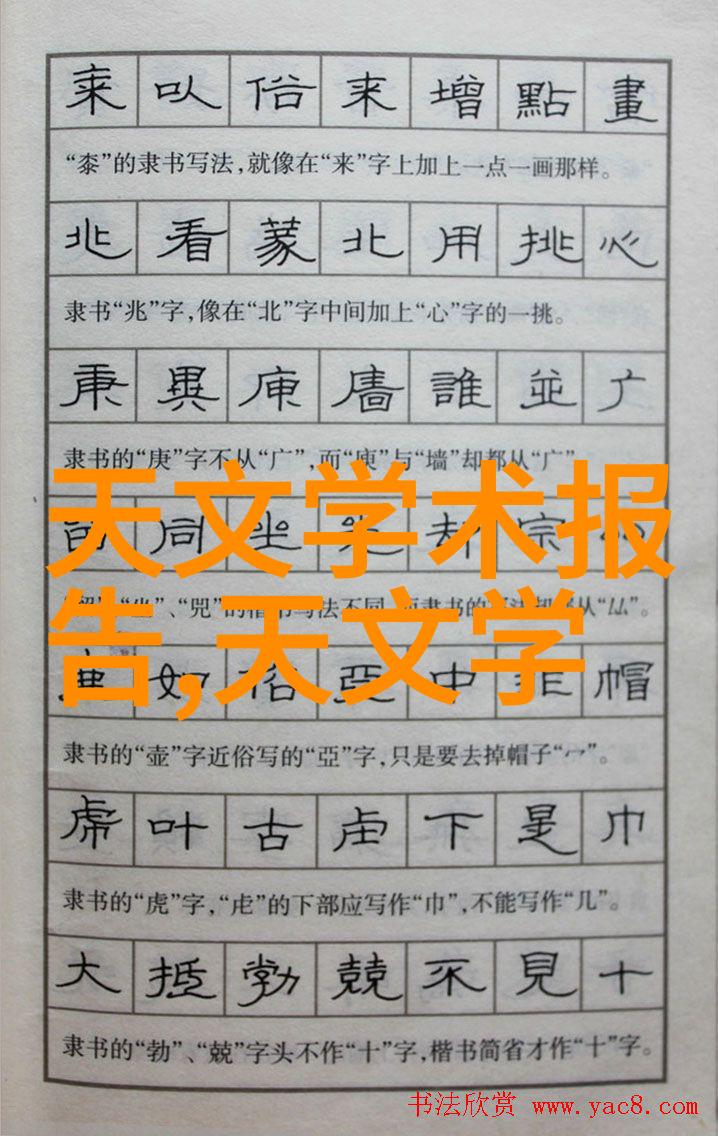 桼以俗来增點畫
“桼”的隶书写法,就像在“来”字上加上一点一画那样。
兆看蒙北用挑心
隶书“兆”字,像在“北”字中间加上“心”字的一挑。
庚異庾墻誰並广
隶书的“庚”字不从“广”,而“庾”与“墙”却都从“广”
天文学术报
告,天文学
同坐却宗
“坐”、“兜”的楷书写法不同,而隶书的写法却都从
如俗亞中非帽
隶书的“壶”字近俗写的“亞”字,只是要去掉帽子“宀”。
虎叶古虍下是巾
隶书的“虎”字,“虍”的下部应写作“巾”,不能写作“几”。
大抵勃兢不見十
隶书的“勃”、“兢”字头不作“十”字,楷书简省才作“十”字。
书法欣赏 www.yac8.com